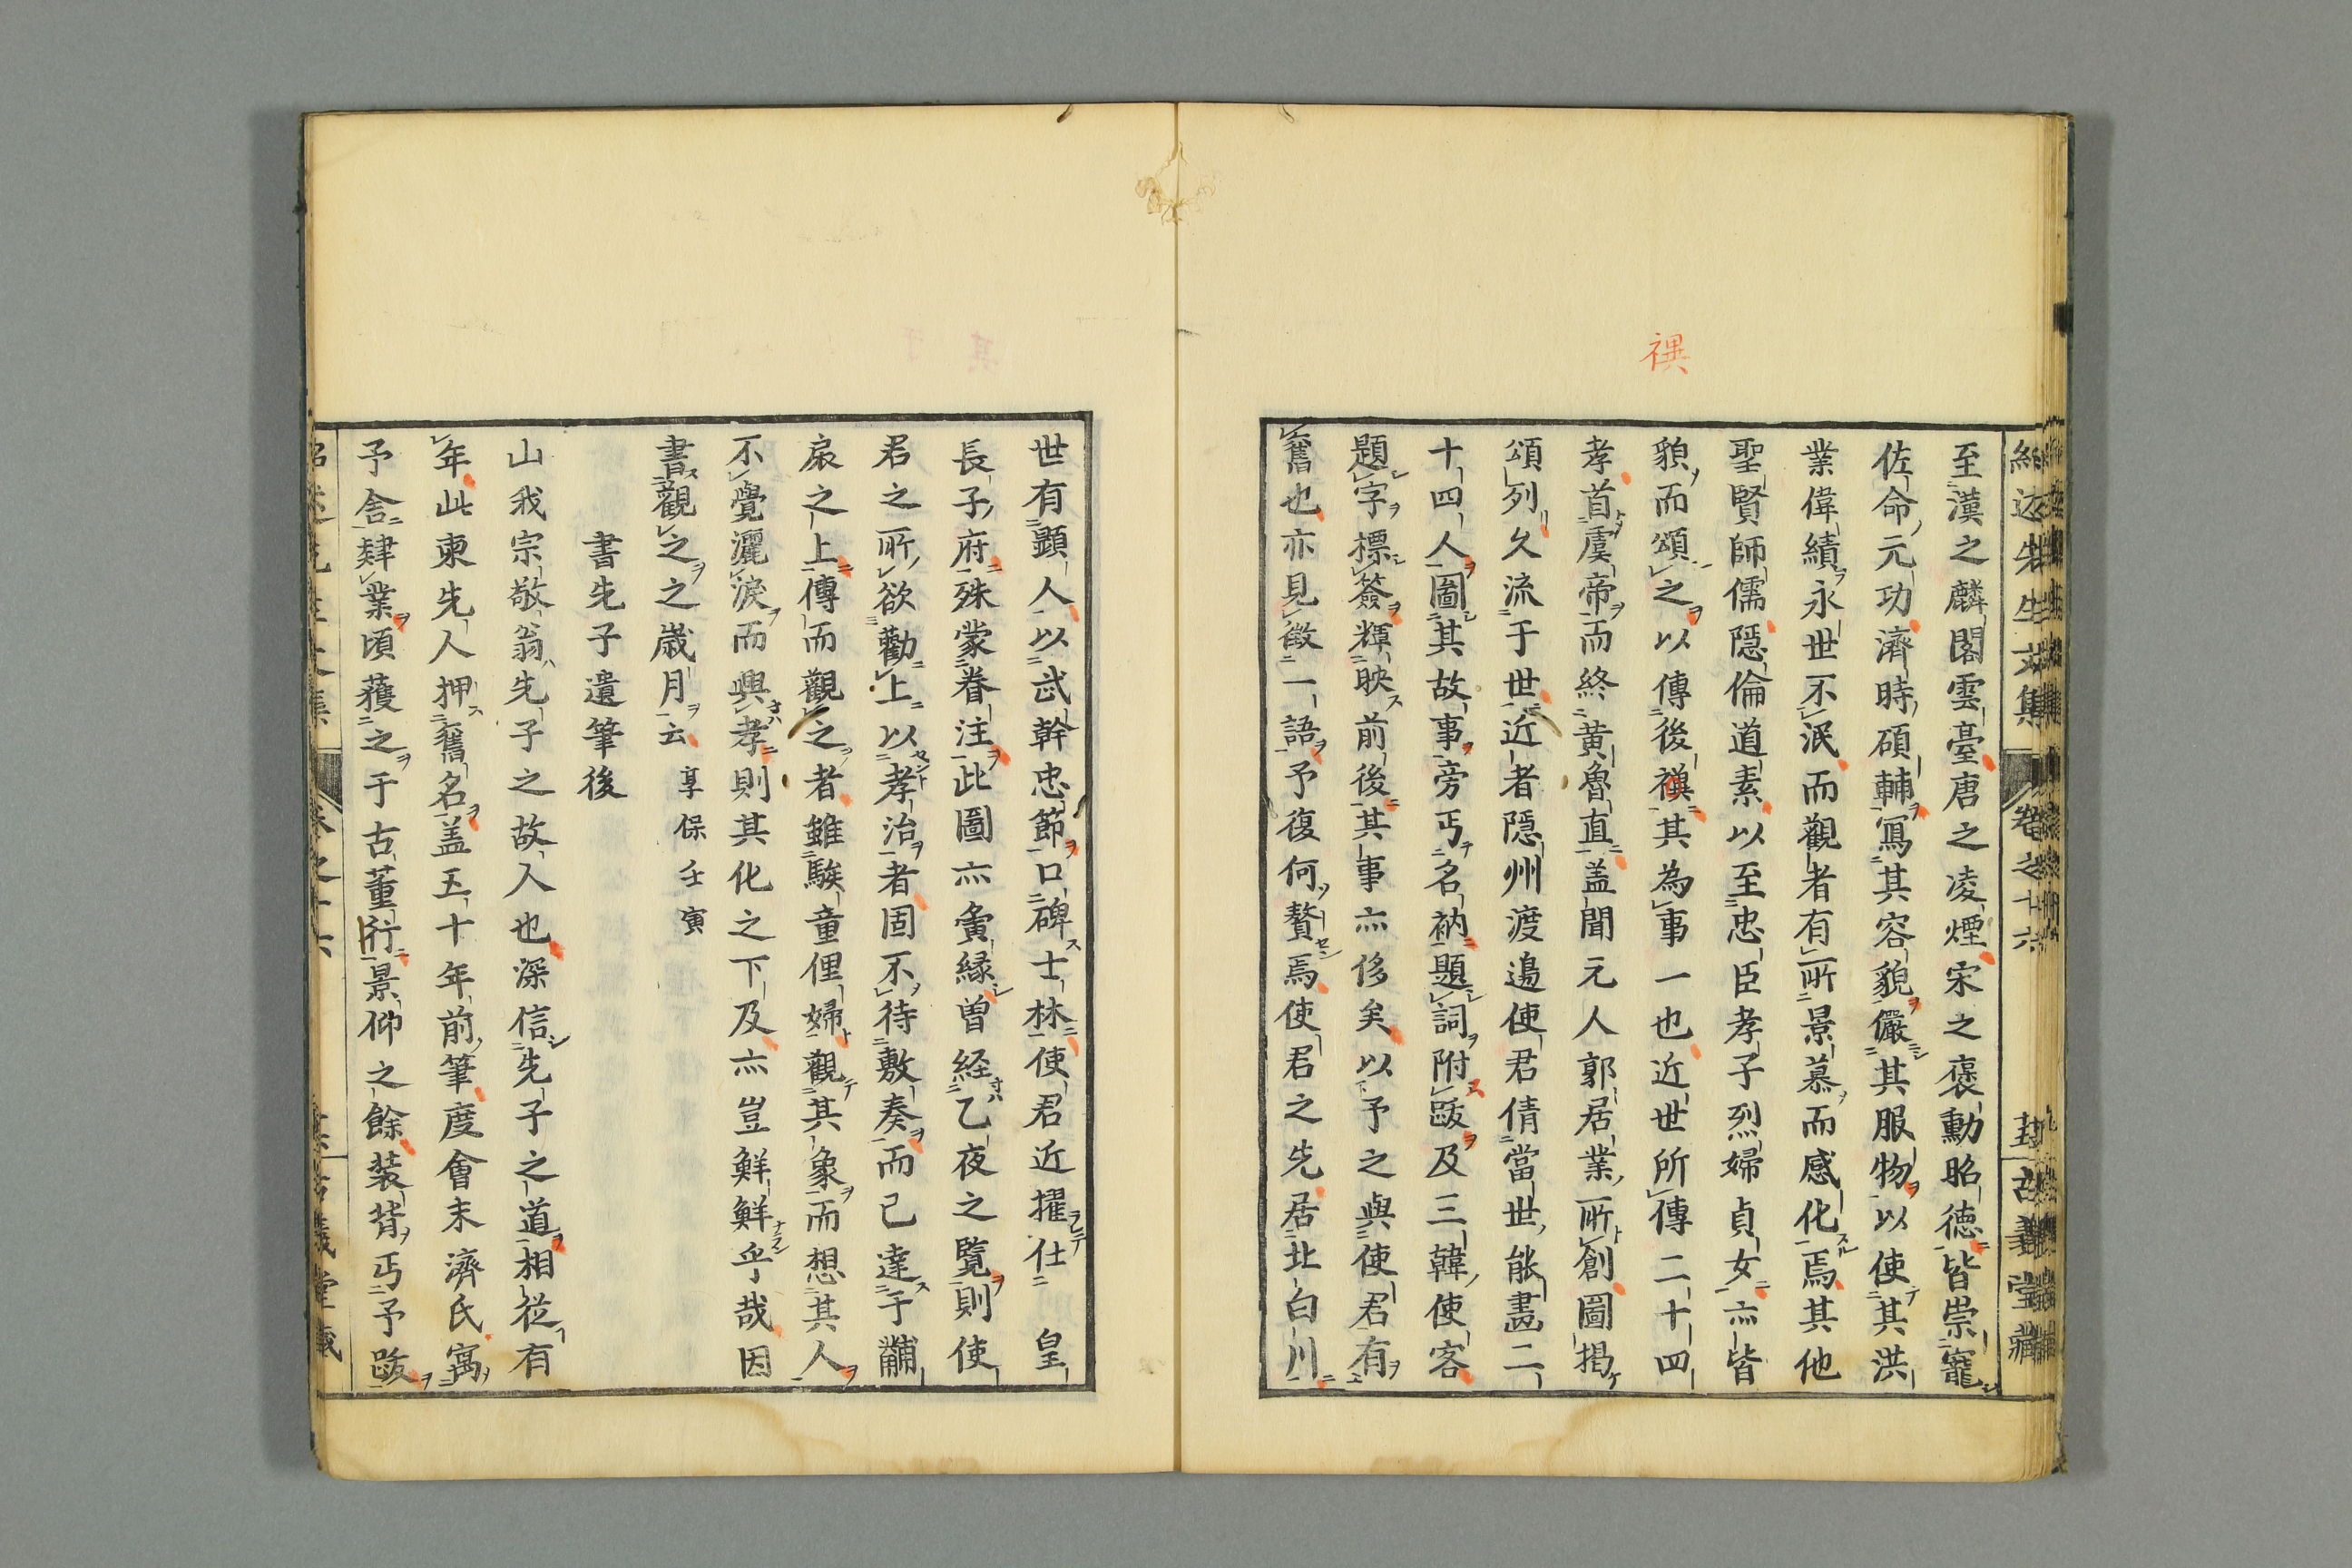 紹述先生文集
卷之十六
古義堂藏
禩
至漢之麟閣雲臺唐之凌煙宋之褒勳昭德皆崇寵
佐命元功濟時碩輔寫其容貌儼其服物以使其洪
業偉績永世不泯而觀者有所景慕而感化焉其他
聖賢師儒隱倫道素以至忠臣孝子烈婦貞女亦皆
貌而頌之以傳後禩其為事一也近世所傳二十四
孝首虞帝而終黄魯直蓋聞元人郭居業所創圖揭
頌列久流于世近者隱州渡邉使君倩當世能畫二
十四人圖其故事旁丐名衲題詞附跋及三韓使客
題字標簽輝映前後其事亦侈矣以予之與使君有
舊也亦見徵一語予復何贅焉使君之先居北白川
世有顯人以武幹忠節口碑士林使君近擢仕 皇
長子府殊蒙眷注此圖亦夤縁曽経乙夜之覽則使
君之所欲勸上以孝治者固不待敷奏而已達于黼
扆之上傳而觀之者雖騃童俚婦觀其象而想其人
不覺灑淚而興孝則其化之下及亦豈鮮鮮乎哉因
書觀之之歳月云 享保壬寅
書先子遺筆後
山我宗敬翁先子之故人也深信先子之道相從有
年此柬先人押舊名蓋五十年前筆度會末濟氏寓
予舎肄業頃獲之于古董行景仰之餘装背丐予跋